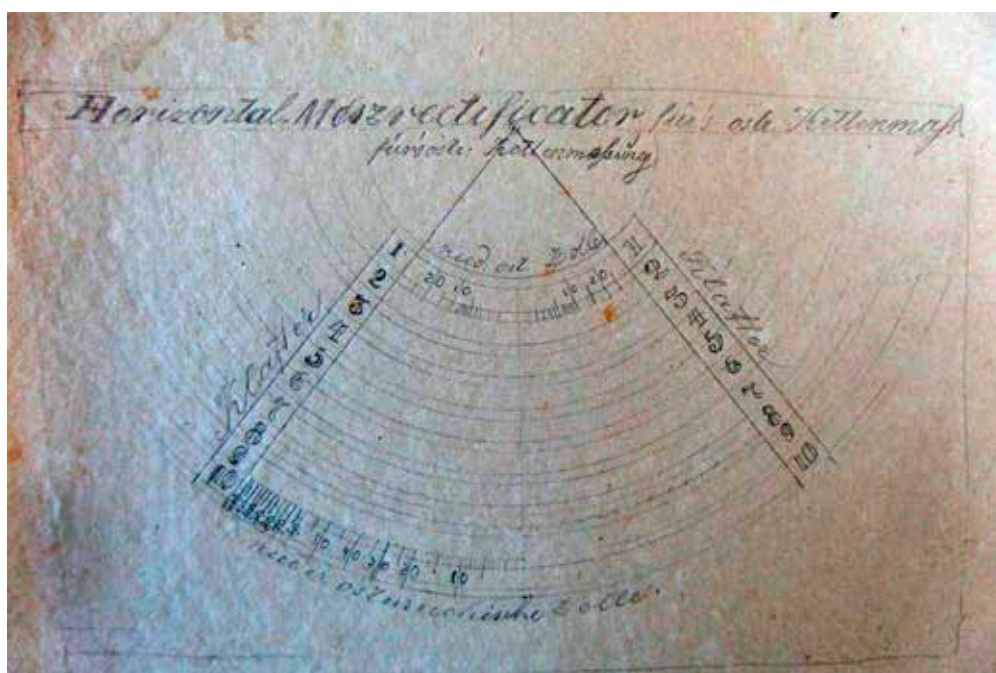 Horizontal Mészrectificator für's östr. Kettenmaß
für's östr. Kettenmaßung
nied öst Zolle
20 10
10 20
Klafter
1 2 3 4 5 6 7 8 9 10
Klafter
1 2 3 4 5 6 7 8 9 10
50 40 30 20 10
Zolle.